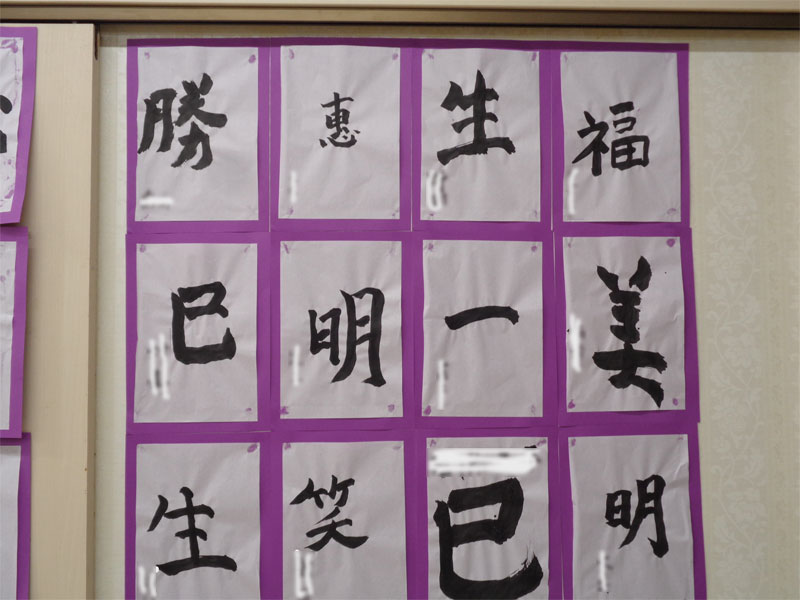 勝 惠 生 福
巳 明 一 美
生 笑 巳 明